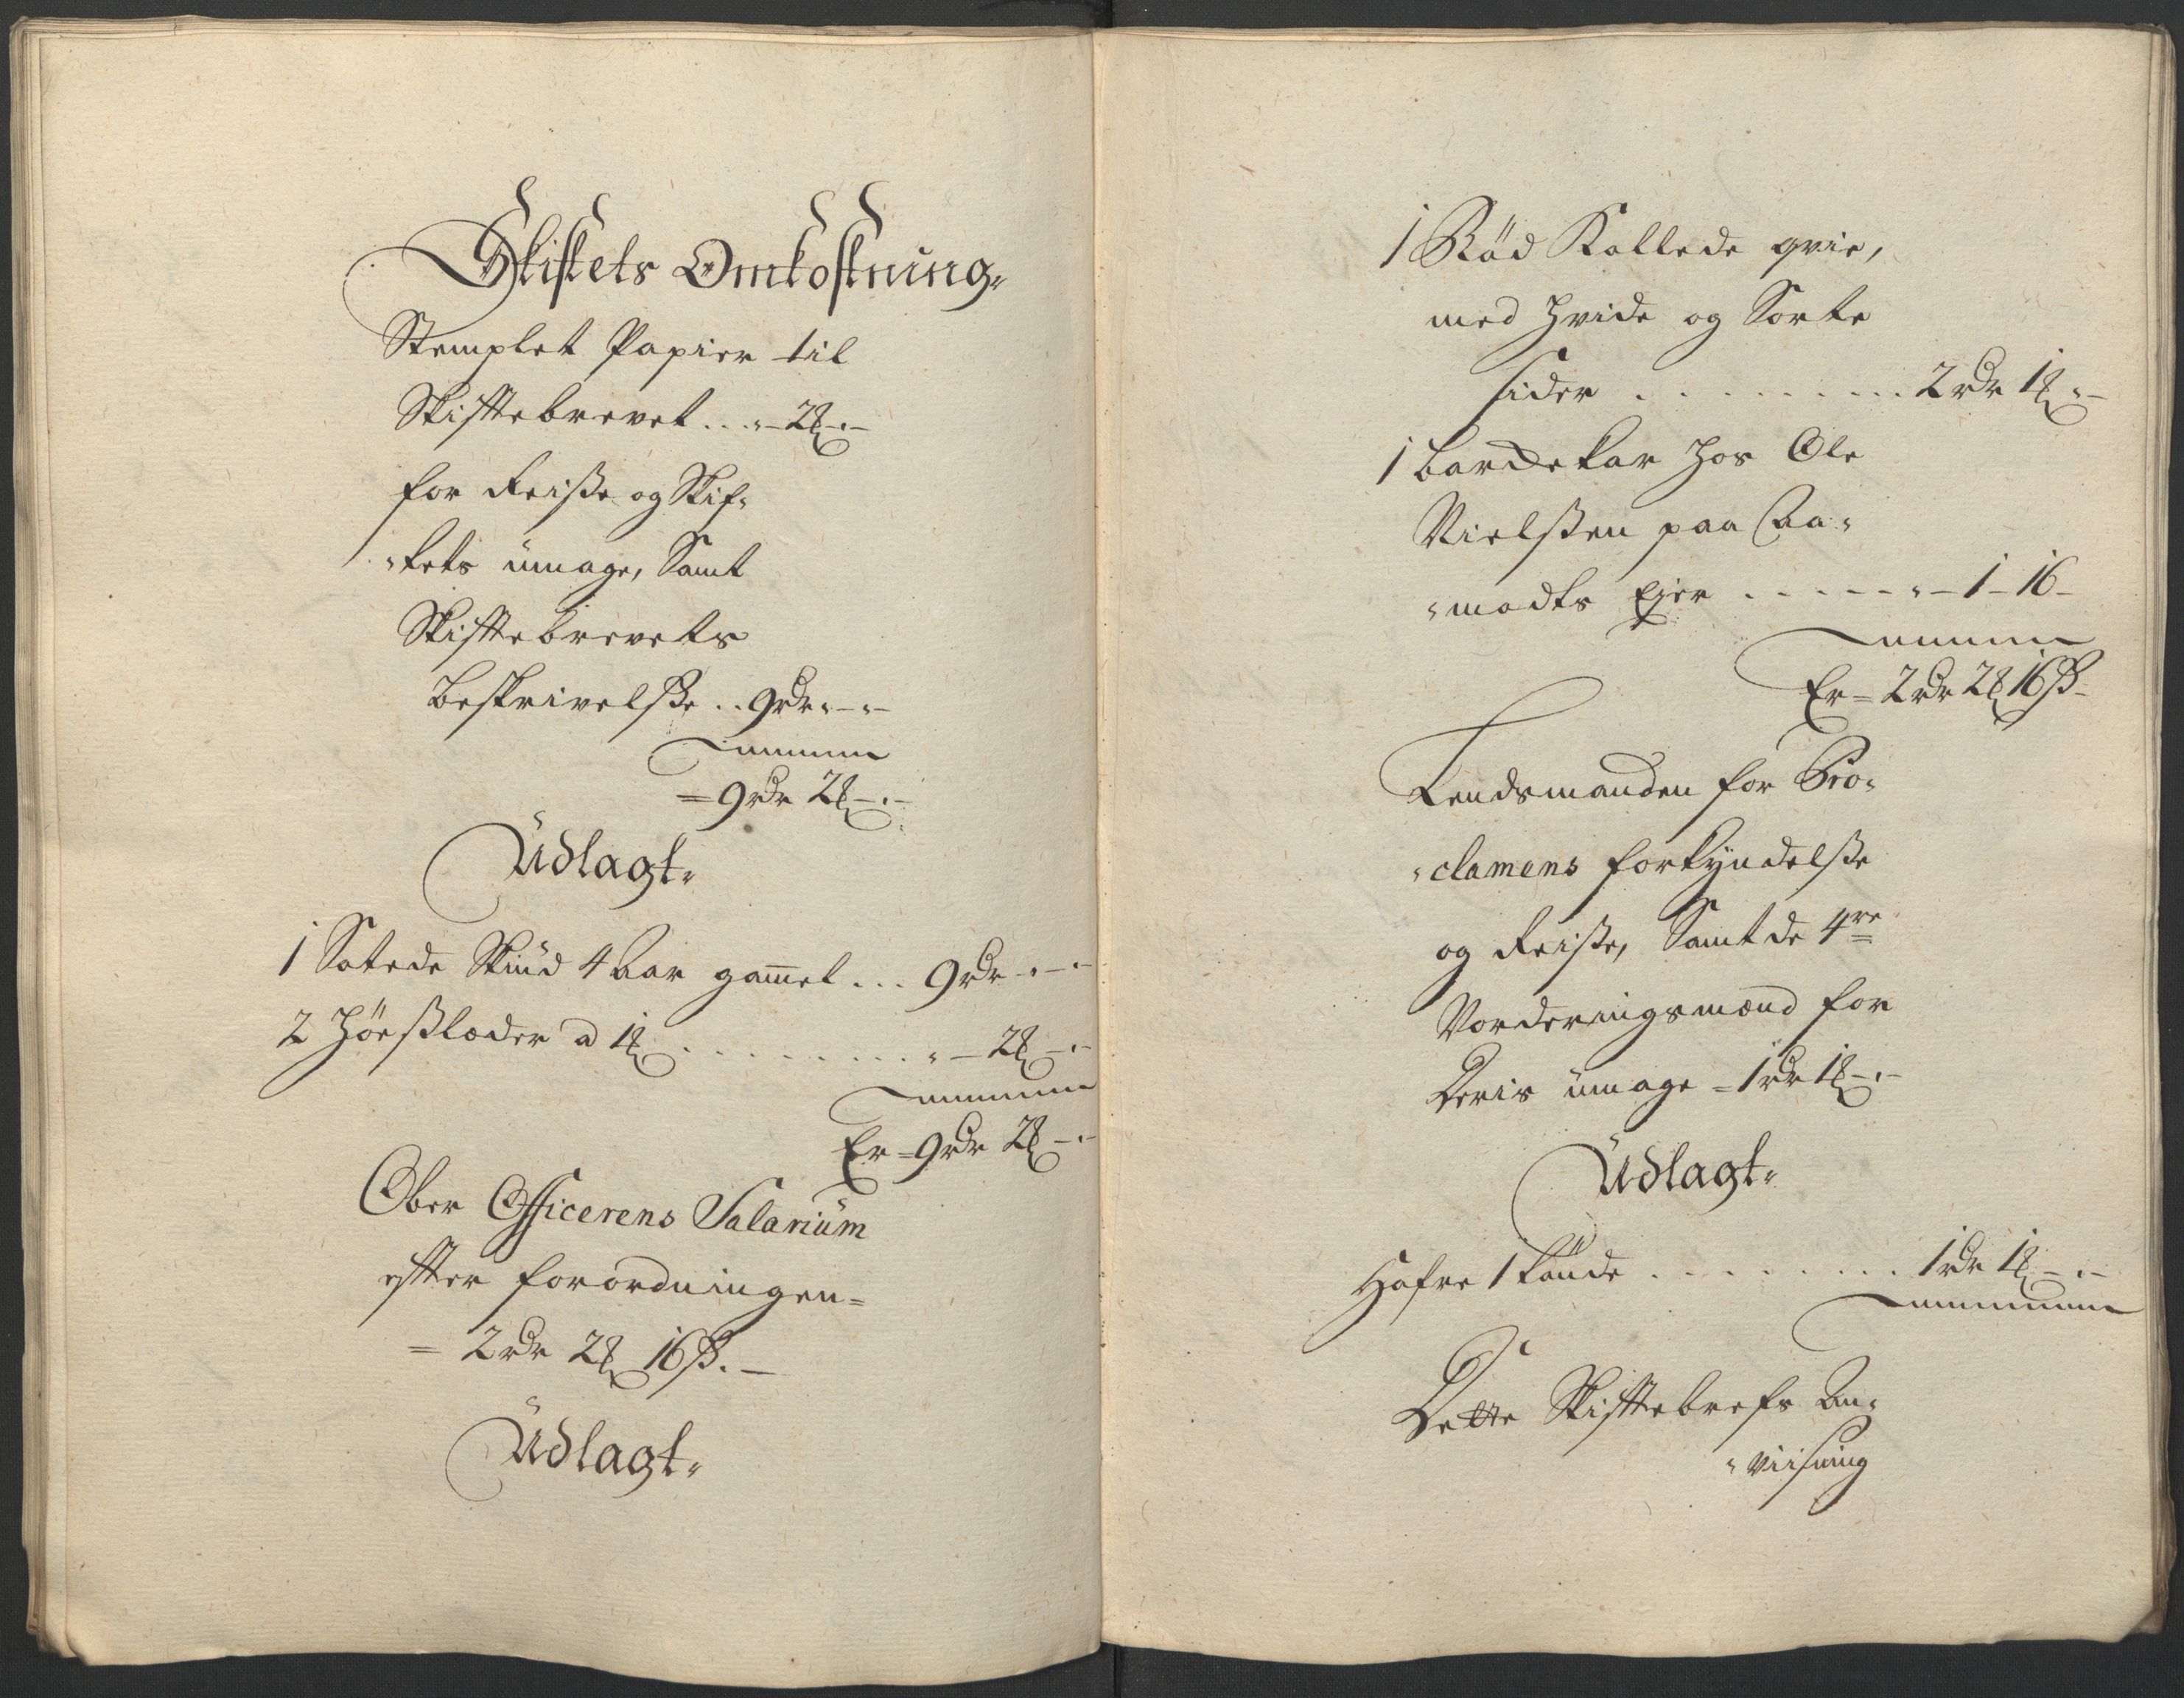 Skiftets Omkostning,
Stemplet Papier til
Skiftebrevet . . . " - 2 ℔ - " -
for Reisse og Skif-
"tets umage, Samt
Skiftebrevets
beskrivelsse . . 9 rdr " - " -
= 9 rdr 2 ℔ - " -
Udlagt,
1 Sotede Skiud 4 Aar gam̄el . . . 9 rdr - " - "
2 Höesslæder a 1 ℔ . . . . . . . . . " - 2 ℔ - "
Er = 9 rdr 2 ℔ - "
Ober Officerens Salarium
effter forordningen =
= 2 rdr 2 ℔ 16 ß. -
Udlagt,
1 Röd Kollede qvie,
med hvide og Sorte
sider . . . . . . . . . 2 rdr 1 ℔ " -
1 barde kar hos Ole
Nielssen paa Aa-
"modts Ejer . . . . . . " - 1 - 16 -
Er = 2 rdr 2 ℔ 16 ß -
Lendsmanden for Pro-
"clamens forkyndelsse
og Reisse, Samt de 4re
Vorderingsmænd for
Deris umage = 1 rdr 1 ℔ - " -
Udlagt,
Hafre 1 tönde . . . . . . . . 1 rdr 1 ℔ - " -
Dette Skiftebrefs An-
"viisning